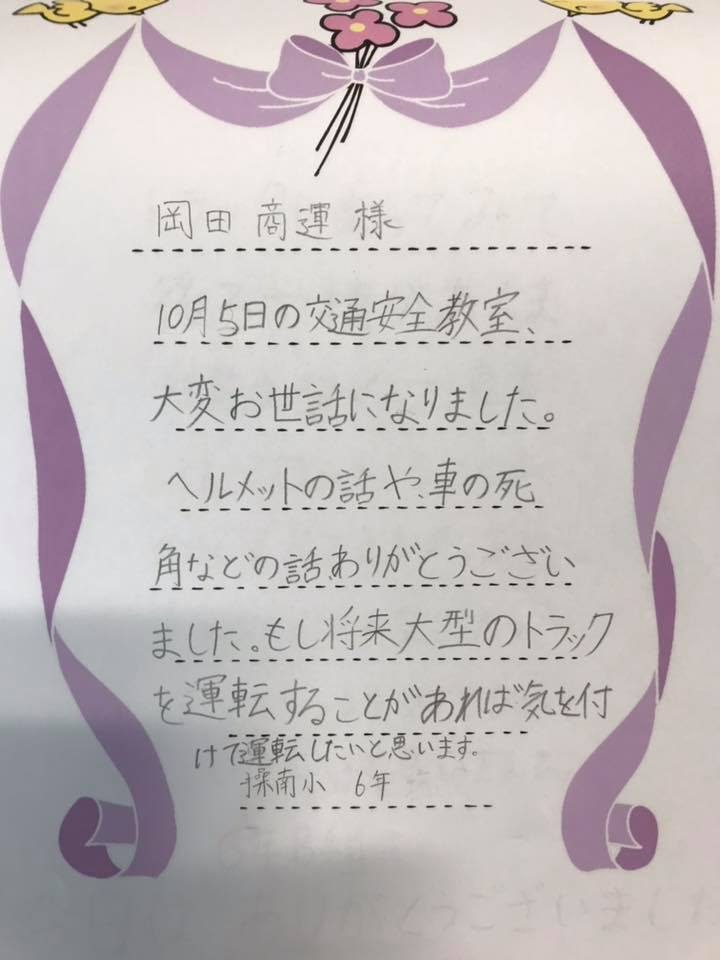 岡田商運様
10月5日の交通安全教室、
大変お世話になりました。
ヘルメットの話や、車の死
角などの話、ありがとうござい
ました。もし将来大型のトラック
を運転することがあれば気を付
けて運転したいと思います。
操南小 6年
ありがとうございました